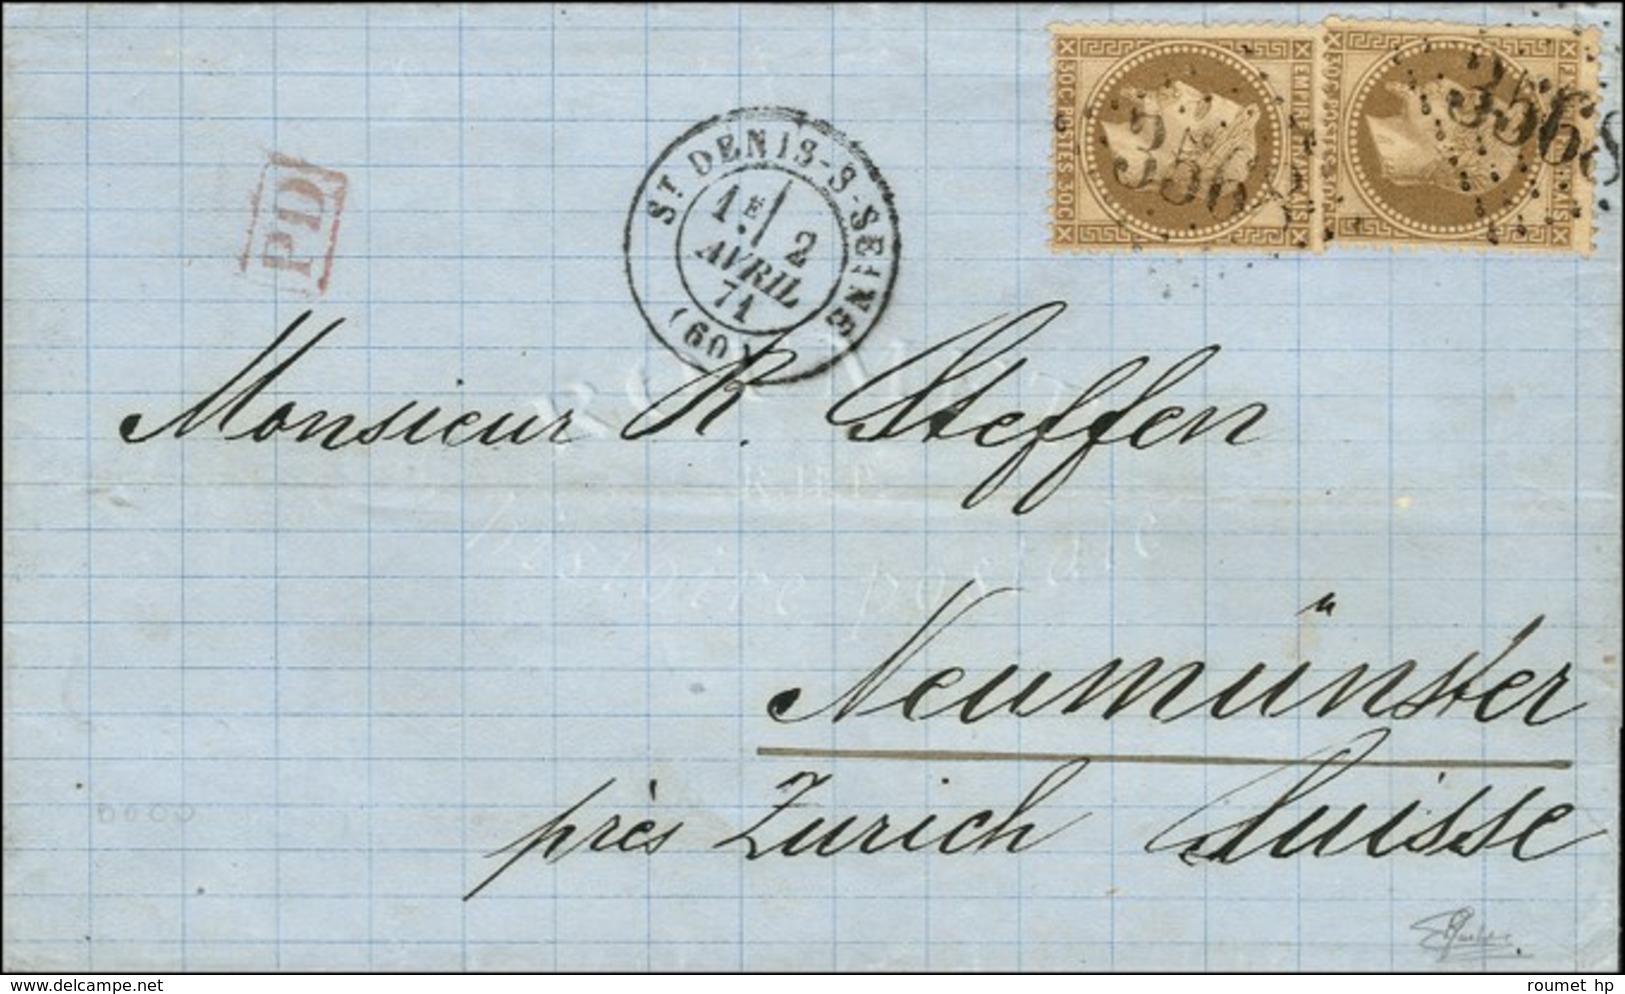 30C POSTES 30C
EMPIRE FRANÇAIS
3568
30C POSTES 30C
EMPIRE FRANÇAIS
3568
PD
ST DENIS-S-SEINE
1E/
2
AVRIL
71
(60)
ROUMET
histoire postale
Monsieur R. Steffen
Neumünster
près Zurich Suisse
www.delcampe.net
roumet hp